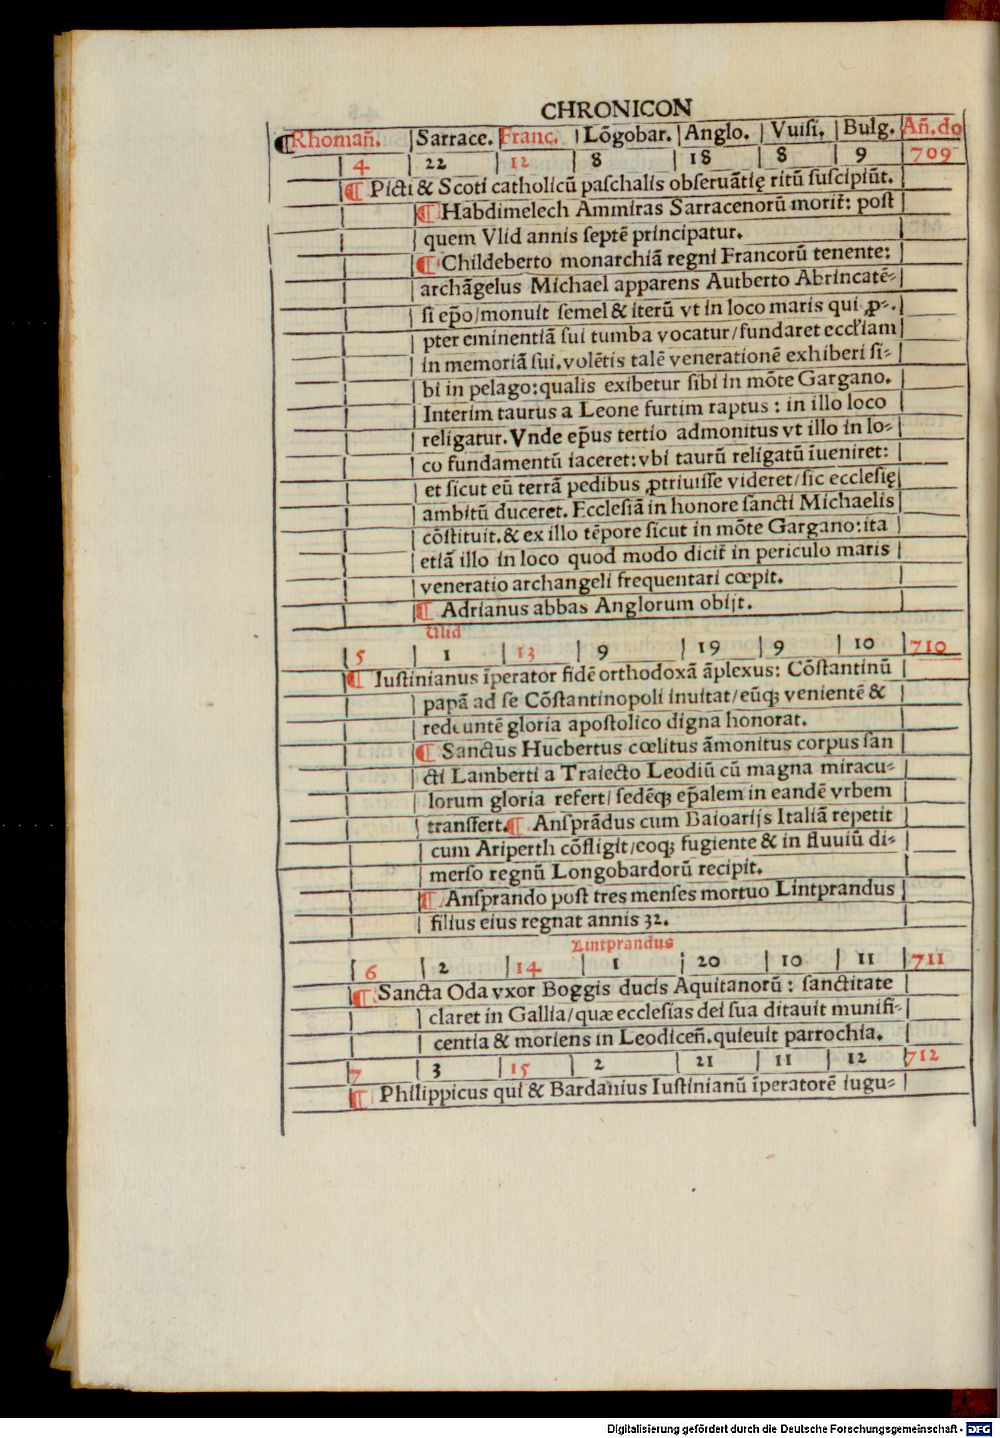 CHRONICON
¶Rhomañ. Sarrace. Franc. Lōgobar. Anglo. Vuisi. Bulg. Añ.do
4 22 12 8 18 8 9 709
¶ Picti & Scoti catholicū paſchalis obſeruātię ritū ſuſcipiūt.
¶ Habdimelech Ammiras Sarracenorū morit̃: poſt
quem Vlid annis ſeptē principatur.
¶ Childeberto monarchiā regni Francorū tenente:
archāgelus Michael apparens Autberto Abrincatē⸗
ſi ep̄o/monuit ſemel & iterū vt in loco maris qui ꝓ⸗.
pter eminentiā ſui tumba vocatur/fundaret eccl'iam
in memoriā ſui.volētis talē venerationē exhiberi ſi⸗
bi in pelago:qualis exibetur ſibi in mōte Gargano.
Interim taurus a Leone furtim raptus : in illo loco
religatur. Vnde ep̄us tertio admonitus vt illo in lo⸗
co fundamentū iaceret:vbi taurū religatū īueniret:
et ſicut eū terrā pedibus ꝓtriuiſſe videret/ſic eccleſię
ambitū duceret. Eccleſiā in honore ſancti Michaelis
cōſtituit.& ex illo tēpore ſicut in mōte Gargano:ita
etiā illo in loco quod modo dicit̃ in periculo maris
veneratio archangeli frequentari cœpit.
¶ Adrianus abbas Anglorum obijt.
Ulid
5 1 13 9 19 9 10 710
¶ Iuſtinianus īperator fidē orthodoxā āplexus: Cōſtantinū
papā ad ſe Cōſtantinopoli inuitat/eūqꝫ venientē &
redeuntē gloria apoſtolico digna honorat.
¶ Sanctus Hucbertus cœlitus āmonitus corpus ſan
cti Lamberti a Traiecto Leodiū cū magna miracu⸗
lorum gloria refert/ ſedēqꝫ ep̄alem in eandē vrbem
tranſfert.¶ Anſprādus cum Baioarijs Italiā repetit
cum Ariperth cōfligit/eoqꝫ fugiente & in fluuiū di⸗
merſo regnū Longobardorū recipit.
¶ Anſprando poſt tres menſes mortuo Lintprandus
filius eius regnat annis 32.
Lintprandus
6 2 14 1 20 10 11 711
¶ Sancta Oda vxor Boggis ducis Aquitanorū : ſanctitate
claret in Gallia/quæ eccleſias dei ſua ditauit munifi⸗
centia & moriens in Leodiceñ.quieuit parrochia.
7 3 15 2 21 11 12 712
¶ Philippicus qui & Bardanius Iuſtinianū īperatorē iugu⸗
Digitalisierung gefördert durch die Deutsche Forschungsgemeinschaft - DFG